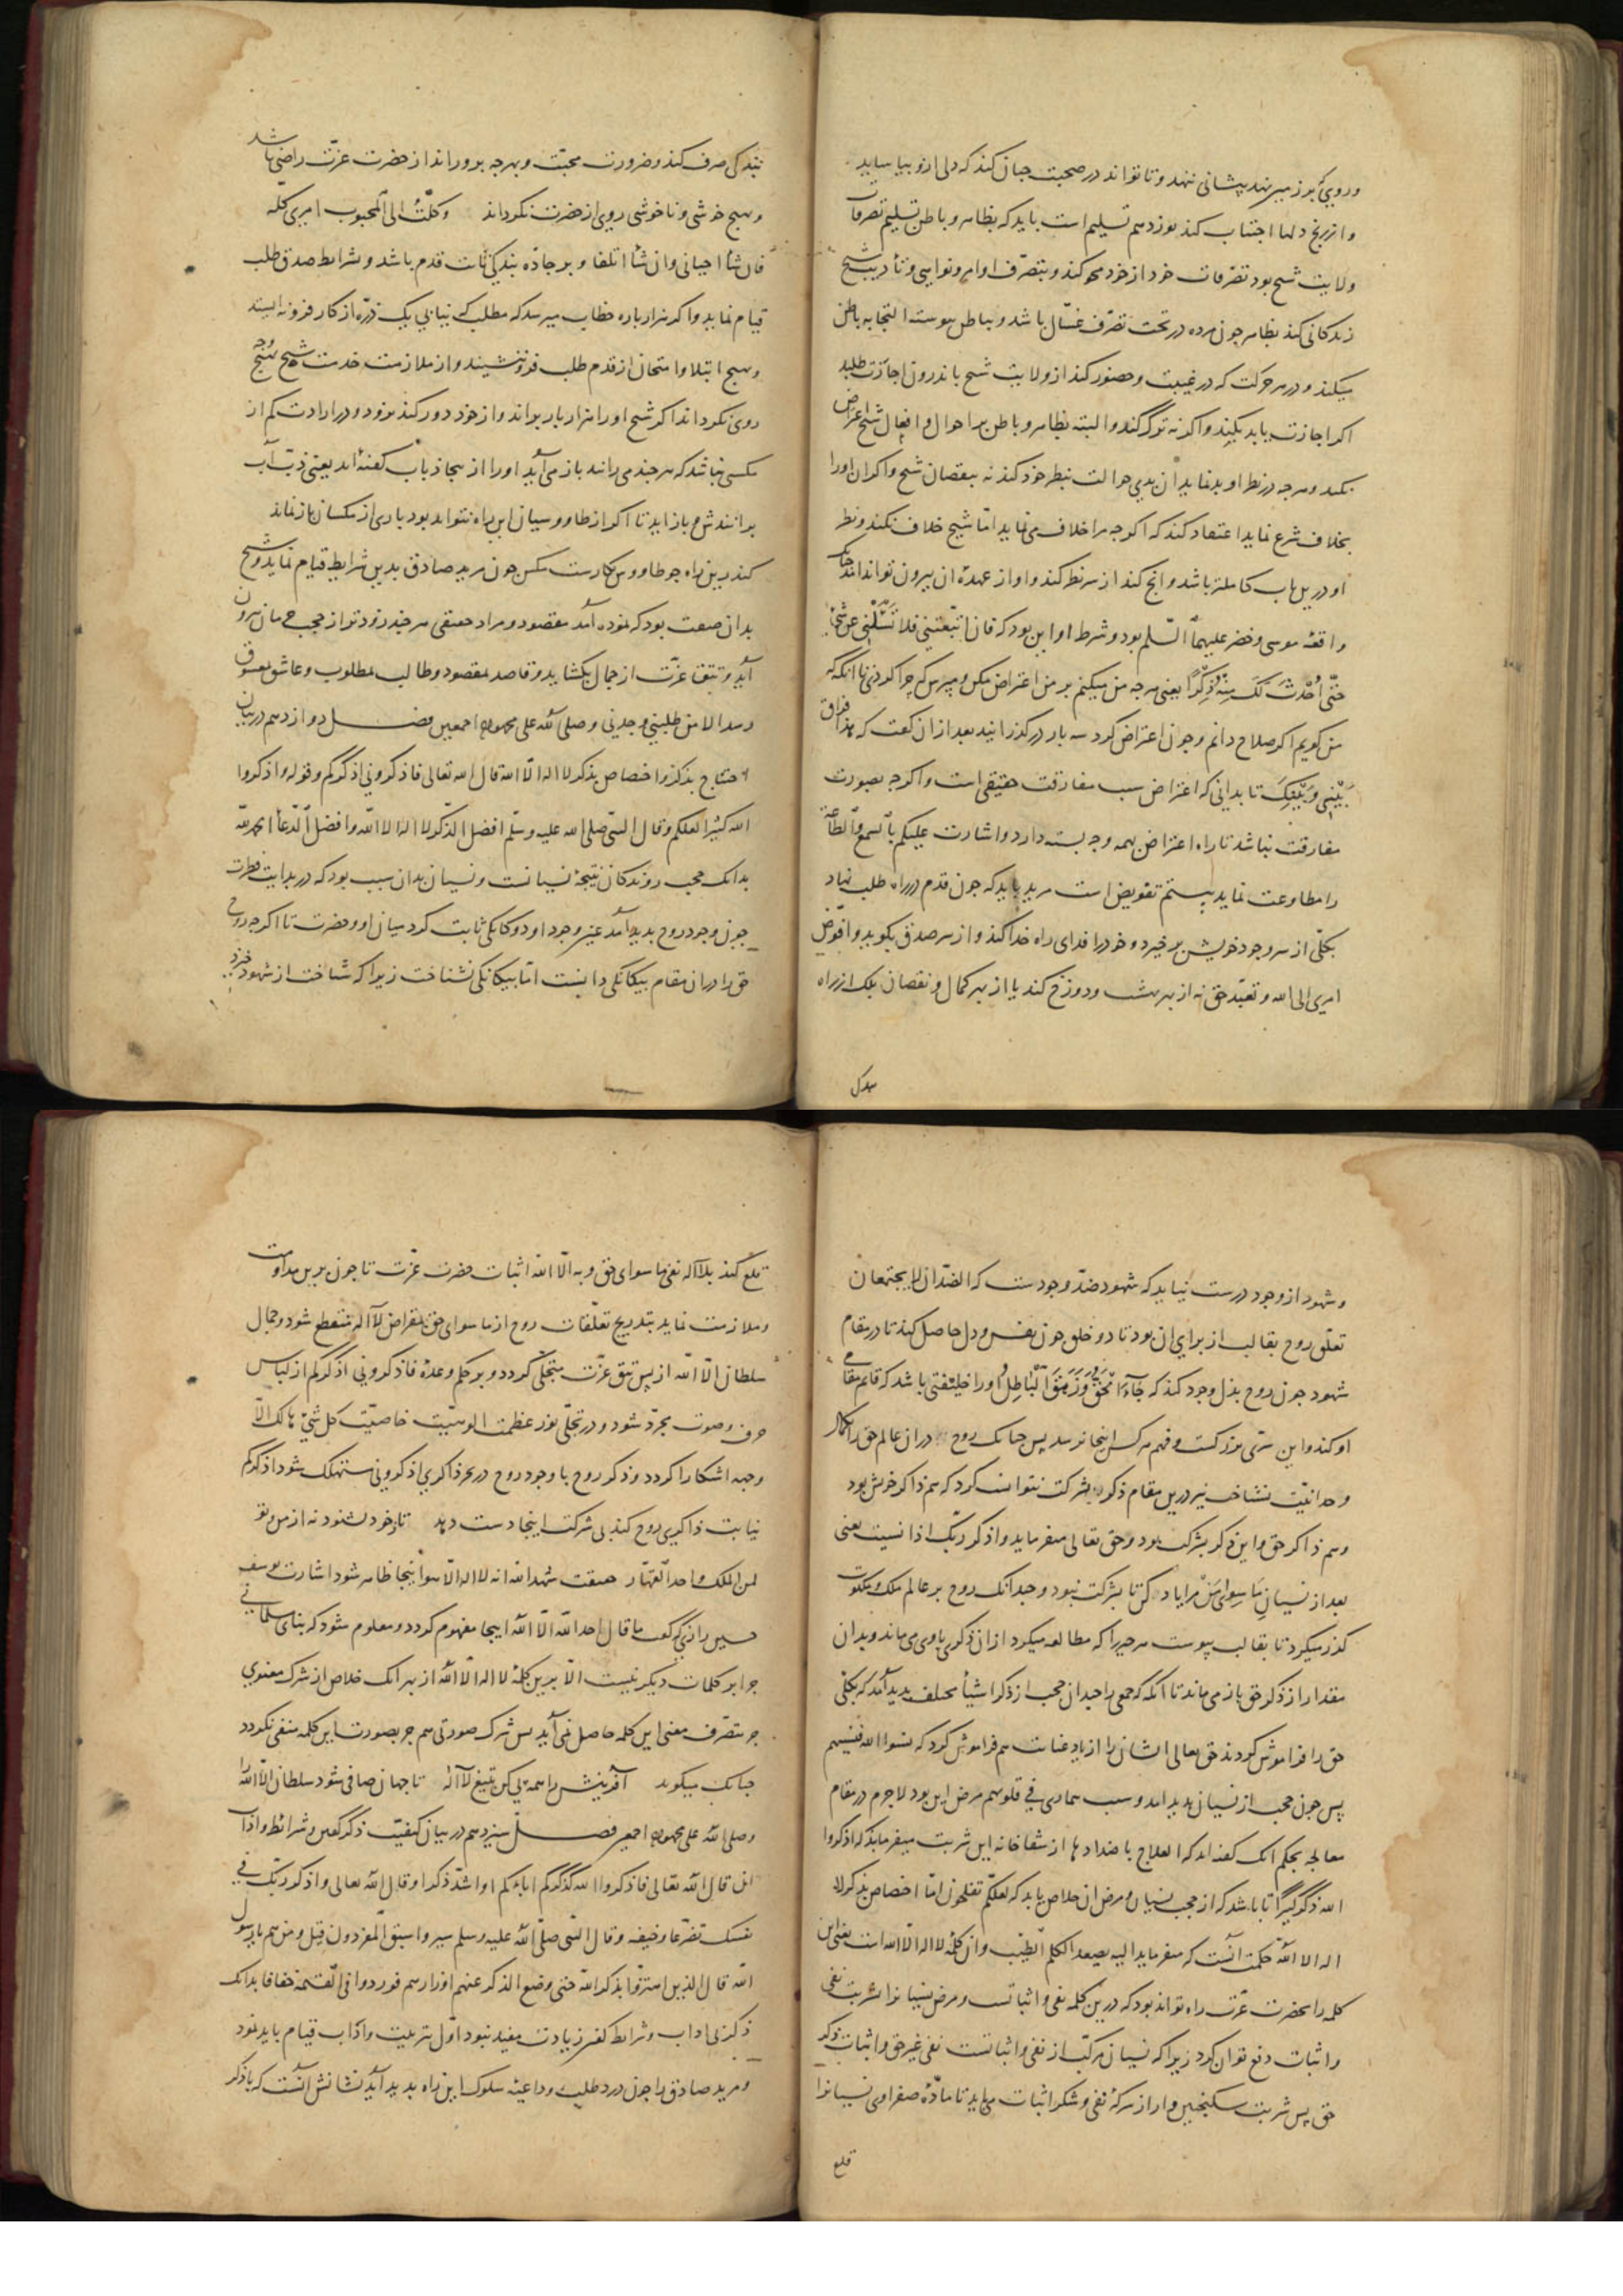 و روی بر زمین نهد پیشانی ننهد و تا تواند در صحبت جنان کند که دلی ازو بیاساید
و از رنج دلها اجتناب کند نوزدهم تسلیم است باید که بظاهر و باطن تسلیم تصرفات
ولایت شیخ بود تصرفات خود از خود محو کند و بتصرف اوامر و نواهی و تأدیب شیخ
زندکانی کند بظاهر جون مرده در تحت تصرف غسال باشد و بباطن پیوسته التجا به باطن
میکند و در هر حرکت که در غیبت و حضور کند از ولایت شیخ باندرون اجازت طلبد
اکر اجازت یابد بکند و اکرنه ترک کند و البته بظاهر و باطن بر احوال و افعال شیخ اعتراض
نکند و هرجه در نظر او بد نماید ان بدی حوالت بنظر خود کند نه بنقصان شیخ و اکر ان اورا
بخلاف شرع نماید اعتقاد کند که اکرجه مرا خلاف می نماید اما شیخ خلاف نکند و نظر
او درین باب کاملتر باشد و انج کند از سر نظر کند و او از عهدۀ ان بیرون تواند امد جنانک
واقعۀ موسی و خضر علیهما السلم بود و شرط او این بود که فان اتبعتنی فلا تسئلنی عن شئ
حتی احدث لک منه ذکرا یعنی هرجه من میکنم بر من اعتراض مکن و مپرس که چرا کردی تا انکه که
من کویم اکر صلاح دانم و جون اعتراض کرد سه بار در کذرانید بعد از ان کفت که هذا فراق
بینی و بینک تا بدانی که اعتراض سبب مفارقت حقیقی است و اکرجه بصورت
مفارقت نباشد تا راه اعتراض بهمه وجه بسته دارد و اشارت علیکم بالسمع و الطاعة
را مطاوعت نماید بیستم تفویض است مرید باید که جون قدم در راه طلب نهاد
بکلی از سر وجود خویش برخیزد و خود را فدای راه خدا کند و از سر صدق بکوید و افوض
امری الی الله و تعبد حق نه از بهر بهشت و دوزخ کند یا از بهر کمال و نقصان بلک از راه
بندکی
بندکی صرف کند و ضرورت محبت و بهرجه برو راند از حضرت عزت راضی باشد
و بهیج خوشی و ناخوشی روی از حضرت نکرداند وکلت الی المحبوب امری کله
فان شأ احیانی وان شأ اتلفا و بر جادۀ بندکی ثابت قدم باشد و بشرایط صدق طلب
قیام نماید و اکر هزار باره خطاب میرسد که مطلب که نیابی یک ذره از کار فرو نه ایستد
و بهیج ابتلا و امتحان از قدم طلب فرو ننشیند و از ملازمت خدمت شیخ بهیج وجه
روی نکرداند اکر شیخ اورا هزار بار براند و از خود دور کند نرود و در ارادت کم از
مکسی نباشد که هرجند می رانند باز می آید اورا از یجا ذباب کفته اند یعنی ذب آب
برانندش و باز اید تا اکر از طاووسیان این راه نتواند بود باری از مکسان باز نماند
کندرین راه جو طاووس بکارست مکس جون مرید صادق بدین شرایط قیام نماید و شیخ
بدان صفت بود که نموده آمد مقصود و مراد حقیقی هرجند زودتر از حجب حرمان بیرون
آید و تتق عزت از جمال بکشاید و قاصد بمقصود و طالب بمطلوب و عاشق بمعشوق
رسد الا من طلبنی وجدنی وصلی الله علی محمد واله اجمعین فصل دوازدهم در بیان
احتیاج بذکر و اختصاص بذکر لا اله الا الله قال الله تعالی فاذکرونی اذکرکم وقوله واذکروا
الله کثیرا لعلکم وقال النبی صلی الله علیه وسلم افضل الذکر لا اله الا الله وافضل الدعأ الحمد لله
بدانک حجب روندکان نتیجۀ نسیانست و نسیان بدان سبب بود که در بدایت فطرت
جون وجود روح بدید آمد عین وجود او دوکانکی ثابت کرد میان او و حضرت تا اکرجه روح
حق را دران مقام بیکانکی دانست اما بیکانکی نشناخت زیرا که شناخت از شهود خیزد
و شهود از وجود درست نیاید که شهود ضد وجودست که الضدان لا یجتمعان
تعلق روح بقالب از برای ان بود تا دو خلق جون نفس و دل حاصل کند تا در مقام
شهود جون روح بذل وجود کند که جاء الحق وزهق الباطل اورا خلیفتی باشد که قایم مقامی
او کند و این سری بزرکست و فهم هر کس اینجا نرسد پس جنانک روح دران عالم حق را بکمال
وحدانیت نشناخت نیز درین مقام ذکر بی شرکت نتوانست کرد که هم ذاکر خویش بود
و هم ذاکر حق و این ذکر بشرکت بود و حق تعالی میفرماید واذکر ربک اذا نسیت یعنی
بعد از نسیان ما سوای من مرا یاد کن تا بشرکت نبود و جندانک روح بر عالم ملک و ملکوت
کذر میکرد تا بقالب پیوست هر جیز را که مطالعه میکرد ازان ذکری با وی می ماند و بدان
مقدار از ذکر حق باز می ماند تا انکه که جمعی را جندان حجب از ذکر اشیأ مختلف پدید آمد که بکلی
حق را فراموش کردند حق تعالی ایشان را از یاد عنایت هم فراموش کرد که نسوا الله فنسیهم
پس جون حجب از نسیان پدید امد و سبب بیماری فی قلوبهم مرض این بود لاجرم در مقام
معالجه بحکم انک کفته اند که العلاج باضدادها از شفاخانه این شربت میفرماید که اذکروا
الله ذکرا کثیرا تا باشد که از حجب نسیان و مرض ان خلاص یابد که لعلکم تفلحون اما اختصاص بذکر لا
اله الا الله حکمت آنست که میفرماید الیه یصعد الکلم الطیب وان کلمۀ لا اله الا الله است یعنی این
کلمه را بحضرت عزت راه تواند بود که درین کلمه نفی و اثباتست و مرض نسیان را بشربت نفی
و اثبات دفع توان کرد زیرا که نسیان مرکب از نفی و اثباتست نفی غیر حق و اثبات ذکر
حق پس شربت سکنجبین وار از سرکۀ نفی و شکر اثبات می باید تا مادۀ صفراوی نسیان را
قلع
قلع کند بلا اله نفی ما سوای حق و به الا الله اثبات حضرت عزت تا جون برین مداومت
و ملازمت نماید بتدریج تعلقات روح از ما سوای حق بمقراض لا اله منقطع شود و جمال
سلطان الا الله از پس تتق عزت متجلی کردد و بر حکم وعدۀ فاذکرونی اذکرکم از لباس
حرف و صوت مجرد شود و در تجلی نور عظمت الوهیت خاصیت کل شئ هالک الا
وجهه اشکارا کردد و ذکر روح با وجود روح در بحر ذاکری اذکرونی مستهلک شود اذکرکم
نیابت ذاکری روح کند بی شرکت اینجا دست دهد تا ز خود بشنود نه از من و تو
لمن الملک واحد القهار حقیقت شهد الله انه لا اله الا هوا اینجا ظاهر شود اشارت یوسف
حسین رازی که کفت ما قال احد الله الا الله اینجا مفهوم کردد و معلوم شود که بنای مسلمانی
جرا بر کلمات دیکر نیست الا برین کلمۀ لا اله الا الله از بهر انک خلاص از شرک معنوی
جز بتصرف معنی این کلمه حاصل نمی آید بس شرک صورتی هم جز بصورت این کلمه منفی نکردد
جنانک میکوید آفرینش را همه پی کن بتیغ لا اله تا جهان صافی شود سلطان الا الله را
وصلی الله علی محمد واله اجمعین فصل سیزدهم در بیان کیفیت ذکر کفتن و شرائط و اداب
ان قال الله تعالی فاذکروا الله کذکرکم اباءکم او اشد ذکرا وقال الله تعالی واذکر ربک فی
نفسک تضرعا وخیفه وقال النبی صلی الله علیه وسلم سیروا سبق المفردون قیل ومن هم یا رسول
الله قال الذین اهتزوا بذکر الله حتی وضع الذکر عنهم اوزارهم فوردوا فی القیمة خفافا بدانک
ذکر بی اداب و شرائط کفتن زیادت مفید نبود اول بترتیب و اداب قیام باید نمود
و مرید صادق را جون درد طلب و داعیۀ سلوک این راه پدید آید نشانش آنست که با ذکر